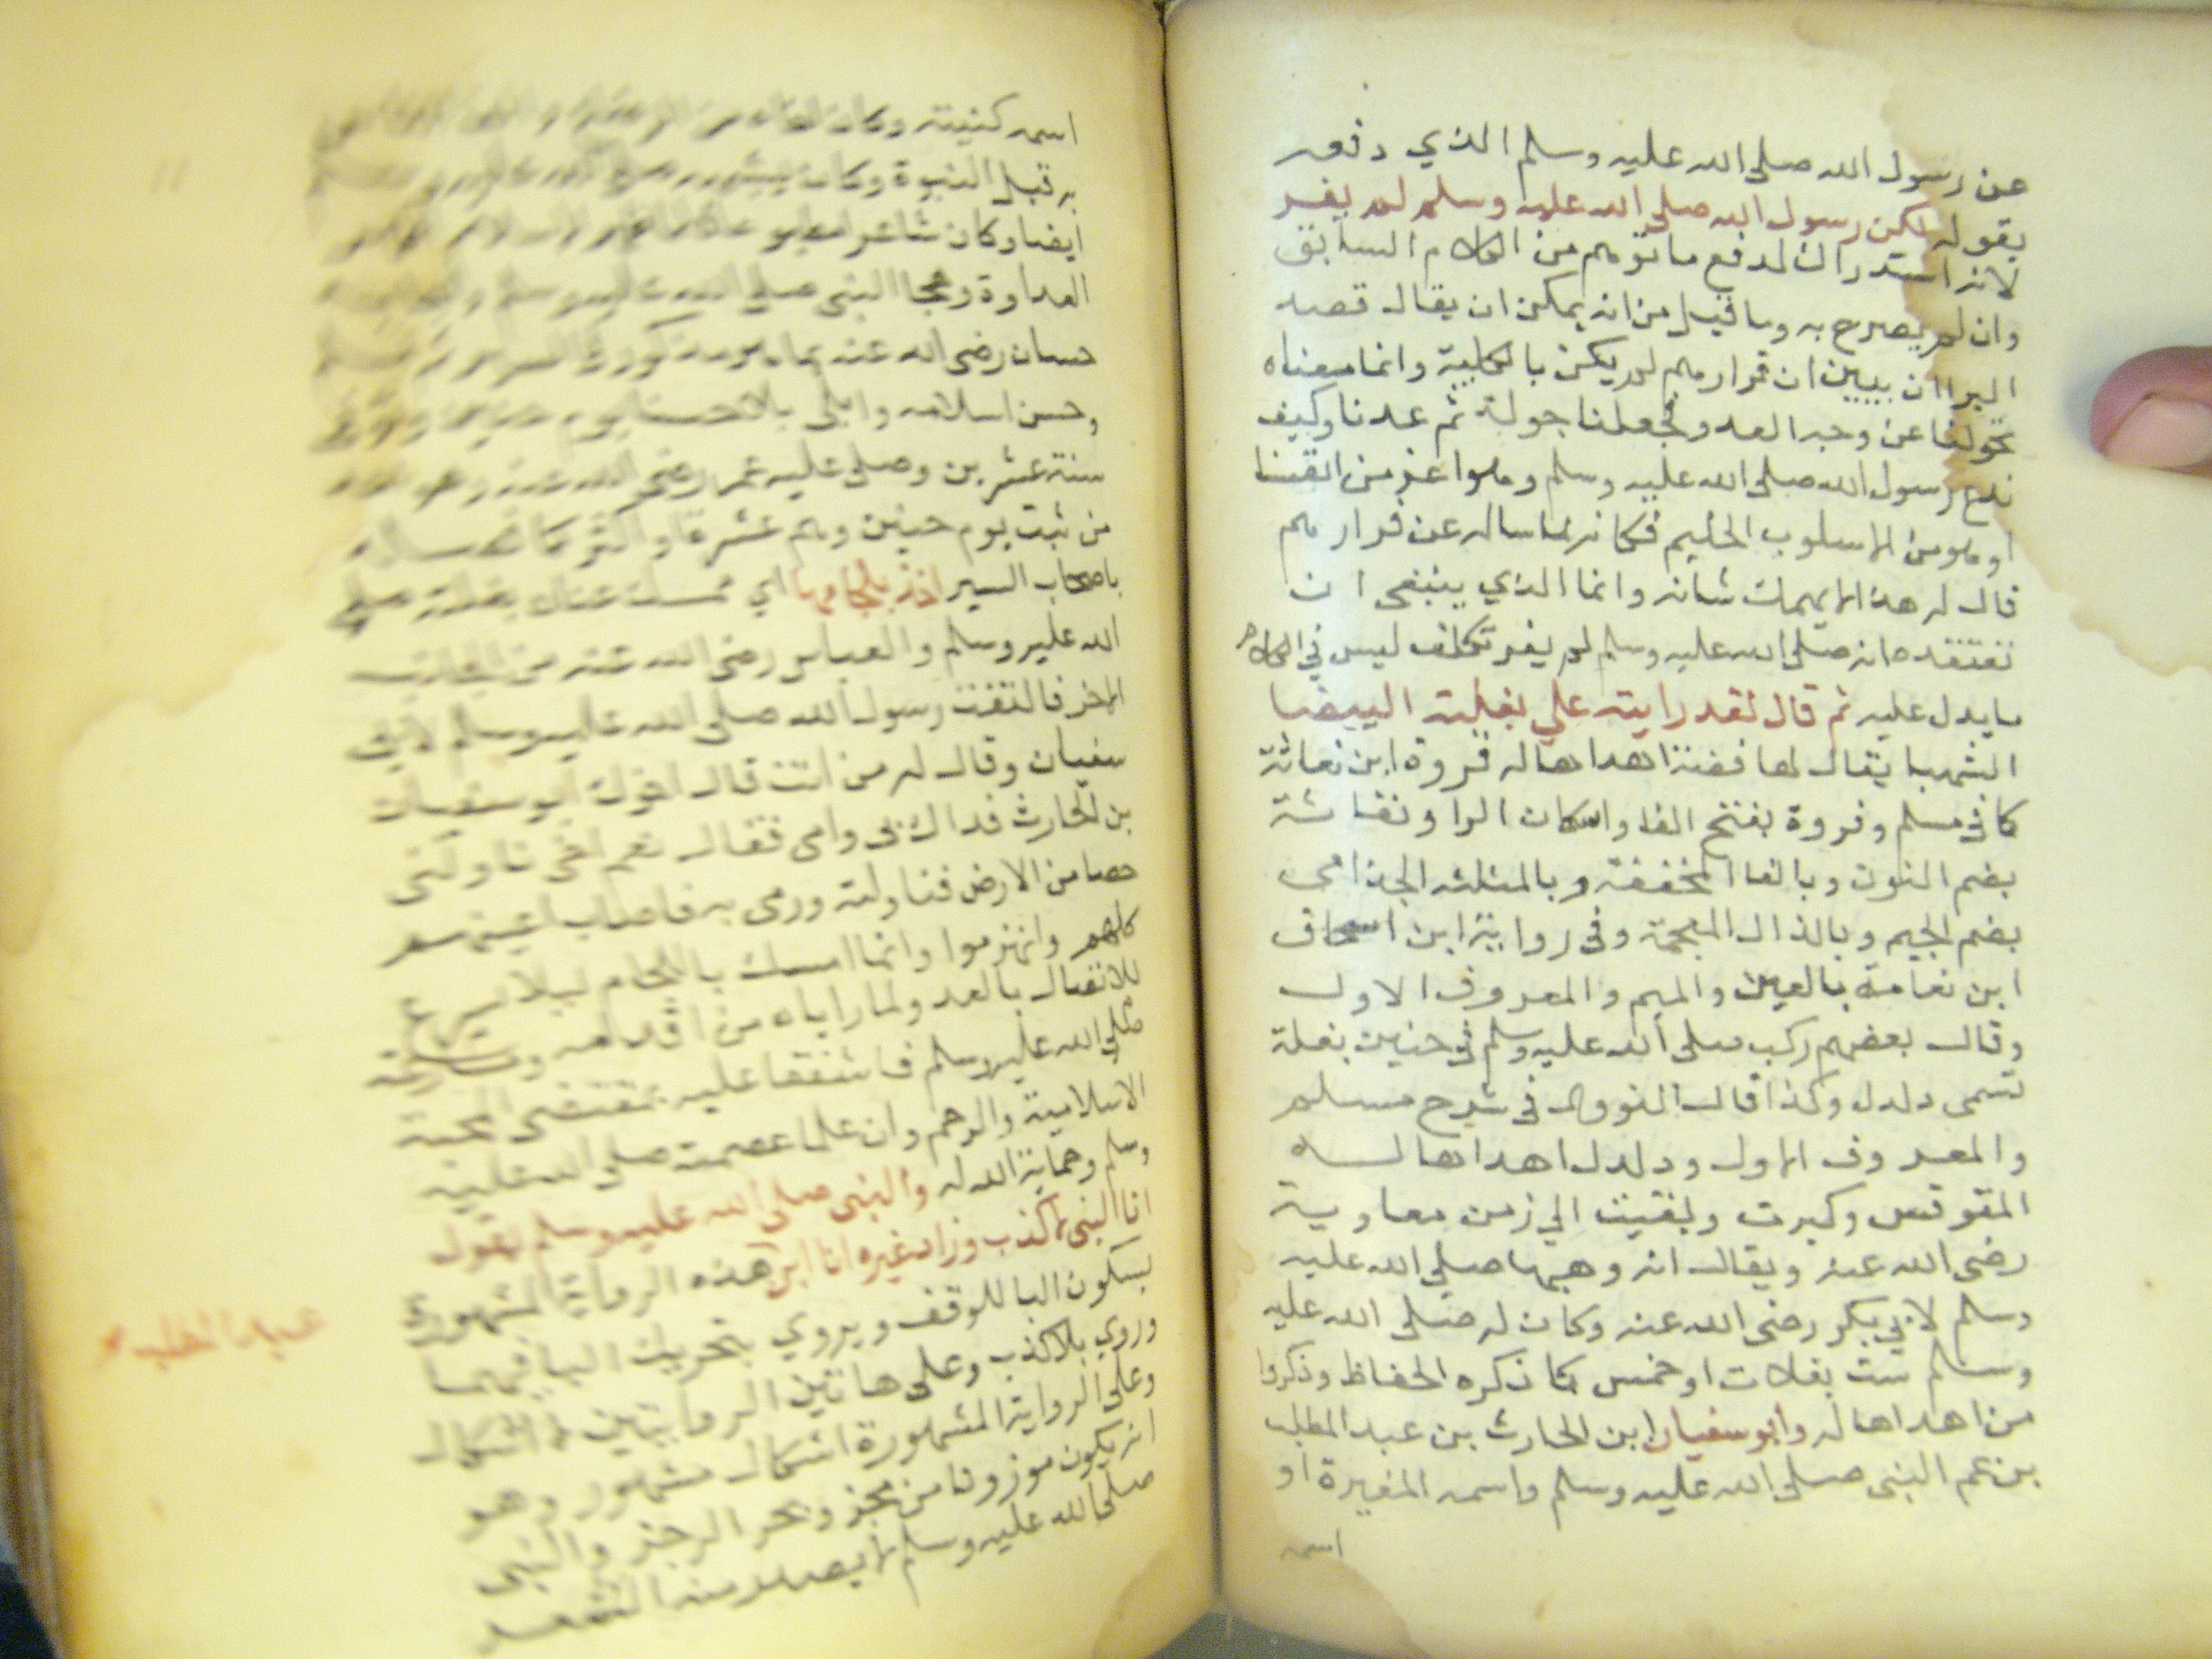 عن رسول الله صلى الله عليه وسلم الذي دفعه
بقوله لكن رسول الله صلى الله عليه وسلم لم يفر
لانه استدراك لدفع ما توهم من الكلام السابق
وان لم يصرح به وما قيل من انه يمكن ان يقال قصد
البرا ان يبين ان فرارهم لم يكن بالكلية وانما معناه
تحولنا عن وجه العدو فجعلنا جولة ثم عدنا وكيف
ندع رسول الله صلى الله عليه وسلم وهو اعز من انفسنا
او هو من الاسلوب الحكيم فكانه لما ساله عن فرارهم
قال له هذا لا يهمك شانه وانما الذي ينبغي ان
تعتقده انه صلى الله عليه وسلم لم يفر تكلف ليس في الكلام
ما يدل عليه ثم قال لقد رايته على بغلته البيضا
الشهبا يقال لها فضة اهداها له فروة ابن نفاثة
كما في مسلم وفروة بفتح الفا واسكان الرا ونفاثة
بضم النون وبالفا المخففة وبالمثلثه الجذامي
بضم الجيم وبالذال المعجمة وفي رواية ابن اسحاق
ابن نعامة بالعين والميم والمعروف الاول
وقال بعضهم ركب صلى الله عليه وسلم في حنين بغلة
تسمى دلدل وكذا قال النووي في شرح مسلم
والمعروف الاول ودلدل اهداها له
المقوقس وكبرت وبقيت الي زمن معاوية
رضى الله عنه ويقال انه وهبها صلى الله عليه
وسلم لابي بكر رضى الله عنه وكان له صلى الله عليه
وسلم ست بغلات او خمس كما ذكره الحفاظ وذكروا
من اهداها له وابو سفيان ابن الحارث بن عبد المطلب
بن عم النبى صلى الله عليه وسلم واسمه المغيرة او
اسمه
اسمه كنيته وكان
به قبل النبوة وكان
ايضا وكان شاعرا
العداوة وهجا النبى صلى الله عليه وسلم
حسان رضى الله عنه
وحسن اسلامه وابلى بلاء حسنا يوم حنين
سنة عشرين وصلى عليه عمر رضى الله عنه وهو
من ثبت يوم حنين وهم عشرة او
باصحاب السير اخذ بلجامها اي ممسك عنان بغلته صلى
الله عليه وسلم والعباس رضى الله عنه من الجانب
الاخر فالتفت رسول الله صلى الله عليه وسلم لابي
سفيان وقال له من انت قال اخوك ابو سفيان
بن الحارث فداك ابى وامى فقال نعم اخى ناولنى
حصا من الارض فناولته ورمى به فاصاب اعينهم
كلهم وانهزموا وانما امسك باللجام ليلا يسرع
للاتصال بالعدو لما راياه من اقدامه
صلى الله عليه وسلم فاشفقا عليه بمقتضى المحبة
الاسلامية والرحم وان علما عصمته صلى الله عليه
وسلم وحماية الله له والنبى صلى الله عليه وسلم يقول
انا النبى لا كذب وزاد غيره انا ابن هذه الرواية المشهورة
عبد المطلب
بسكون البا للوقف ويروي بتحريك البا فيهما
وروي بلا كذب وعلى هاتين الروايتين لا اشكال
وعلى الرواية المشهورة اشكال مشهور وهو
انه يكون موزونا من مجزو بحر الرجز والنبى
صلى الله عليه وسلم لا يصدر منه الشعر